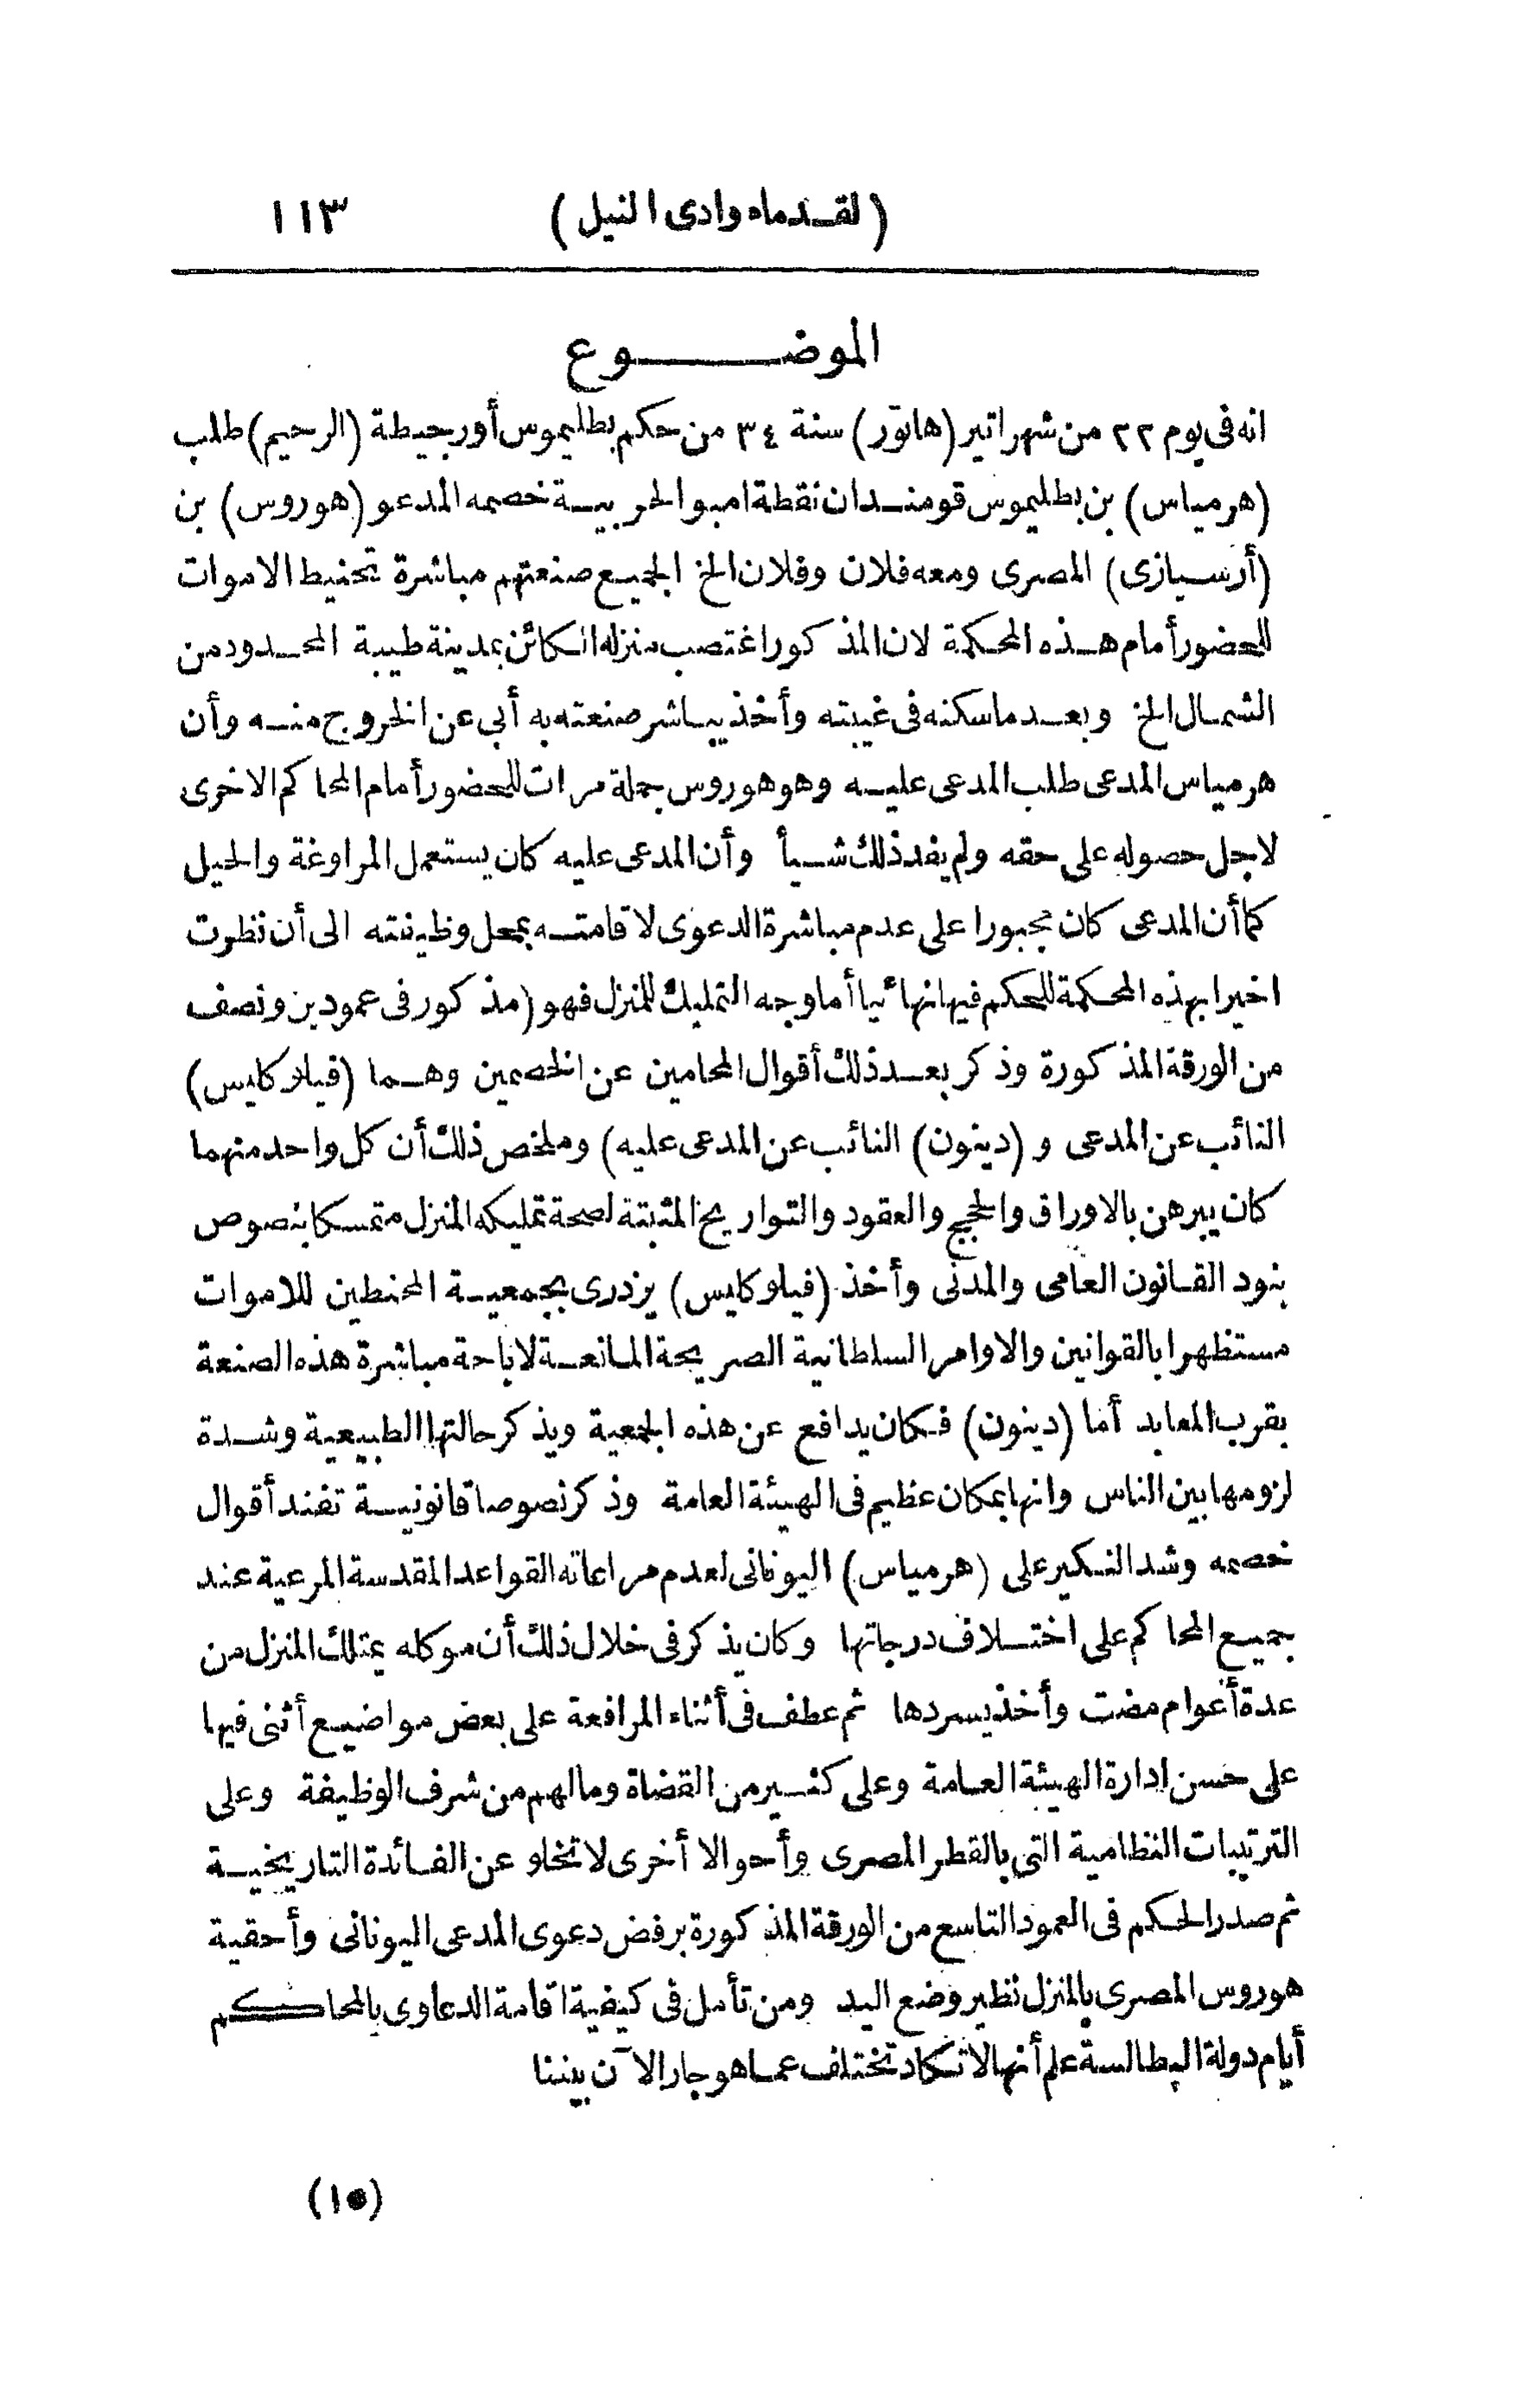 (لقدماه وادى النيل) ١١٣
الموضوع
انه فى يوم ٢٢ من شهر اتير (هاتور) سنة ٣٤ من حكم بطليموس أورجيطة (الرحيم) طلب
(هرمياس) بن بطليموس قومندان نقطة امبو الحربية خصمه المدعو (هوروس) بن
(أرسيازى) المصرى ومعه فلان وفلان الخ الجميع صنعتهم مباشرة تحنيط الاموات
للحضور أمام هذه المحكمة لان المذكور اغتصب منزله الكائن بمدينة طيبة المحدود من
الشمال الخ وبعد ما سكنه فى غيبته وأخذ يباشر صنعته به أبى عن الخروج منه وأن
هرمياس المدعى طلب المدعى عليه وهو هوروس جملة مرات للحضور أمام المحاكم الاخرى
لاجل حصوله على حقه ولم يفد ذلك شيأ وأن المدعى عليه كان يستعمل المراوغة والحيل
كما أن المدعى كان مجبورا على عدم مباشرة الدعوى لاقامته بمحل وظيفته الى أن نظرت
اخيرا بهذه المحكمة للحكم فيها نهائيا أما وجه التمليك للمنزل فهو (مذكور فى عمودين ونصف
من الورقة المذكورة وذكر بعد ذلك أقوال المحامين عن الخصمين وهما (فيلوكايس)
النائب عن المدعى و (دينون) النائب عن المدعى عليه) وملخص ذلك أن كل واحد منهما
كان يبرهن بالاوراق والحجج والعقود والتواريخ المثبتة لصحة تمليكه المنزل متمسكا بنصوص
بنود القانون العامى والمدنى وأخذ (فيلوكايس) يزدرى بجمعية المحنطين للاموات
مستظهرا بالقوانين والاوامر السلطانية الصريحة المانعة لاباحة مباشرة هذه الصنعة
بقرب المعابد أما (دينون) فكان يدافع عن هذه الجمعية ويذكر حالتها الطبيعية وشدة
لزومها بين الناس وانها بمكان عظيم فى الهيئة العامة وذكر نصوصا قانونية تفند أقوال
خصمه وشد النكير على (هرمياس) اليونانى لعدم مراعاته القواعد المقدسة المرعية عند
جميع المحاكم على اختلاف درجاتها وكان يذكر فى خلال ذلك أن موكله يمتلك المنزل من
عدة أعوام مضت وأخذ يسردها ثم عطف فى أثناء المرافعة على بعض مواضيع أثنى فيها
على حسن ادارة الهيئة العامة وعلى كثير من القضاة ومالهم من شرف الوظيفة وعلى
الترتيبات النظامية التى بالقطر المصرى وأحوالا أخرى لا تخلو عن الفائدة التاريخية
ثم صدر الحكم فى العمود التاسع من الورقة المذكورة برفض دعوى المدعى اليونانى وأحقية
هوروس المصرى بالمنزل نظير وضع اليد ومن تأمل فى كيفية اقامة الدعاوى بالمحاكم
أيام دولة البطالسة علم أنها لا تكاد تختلف عما هو جار الآن بيننا
(١٥)